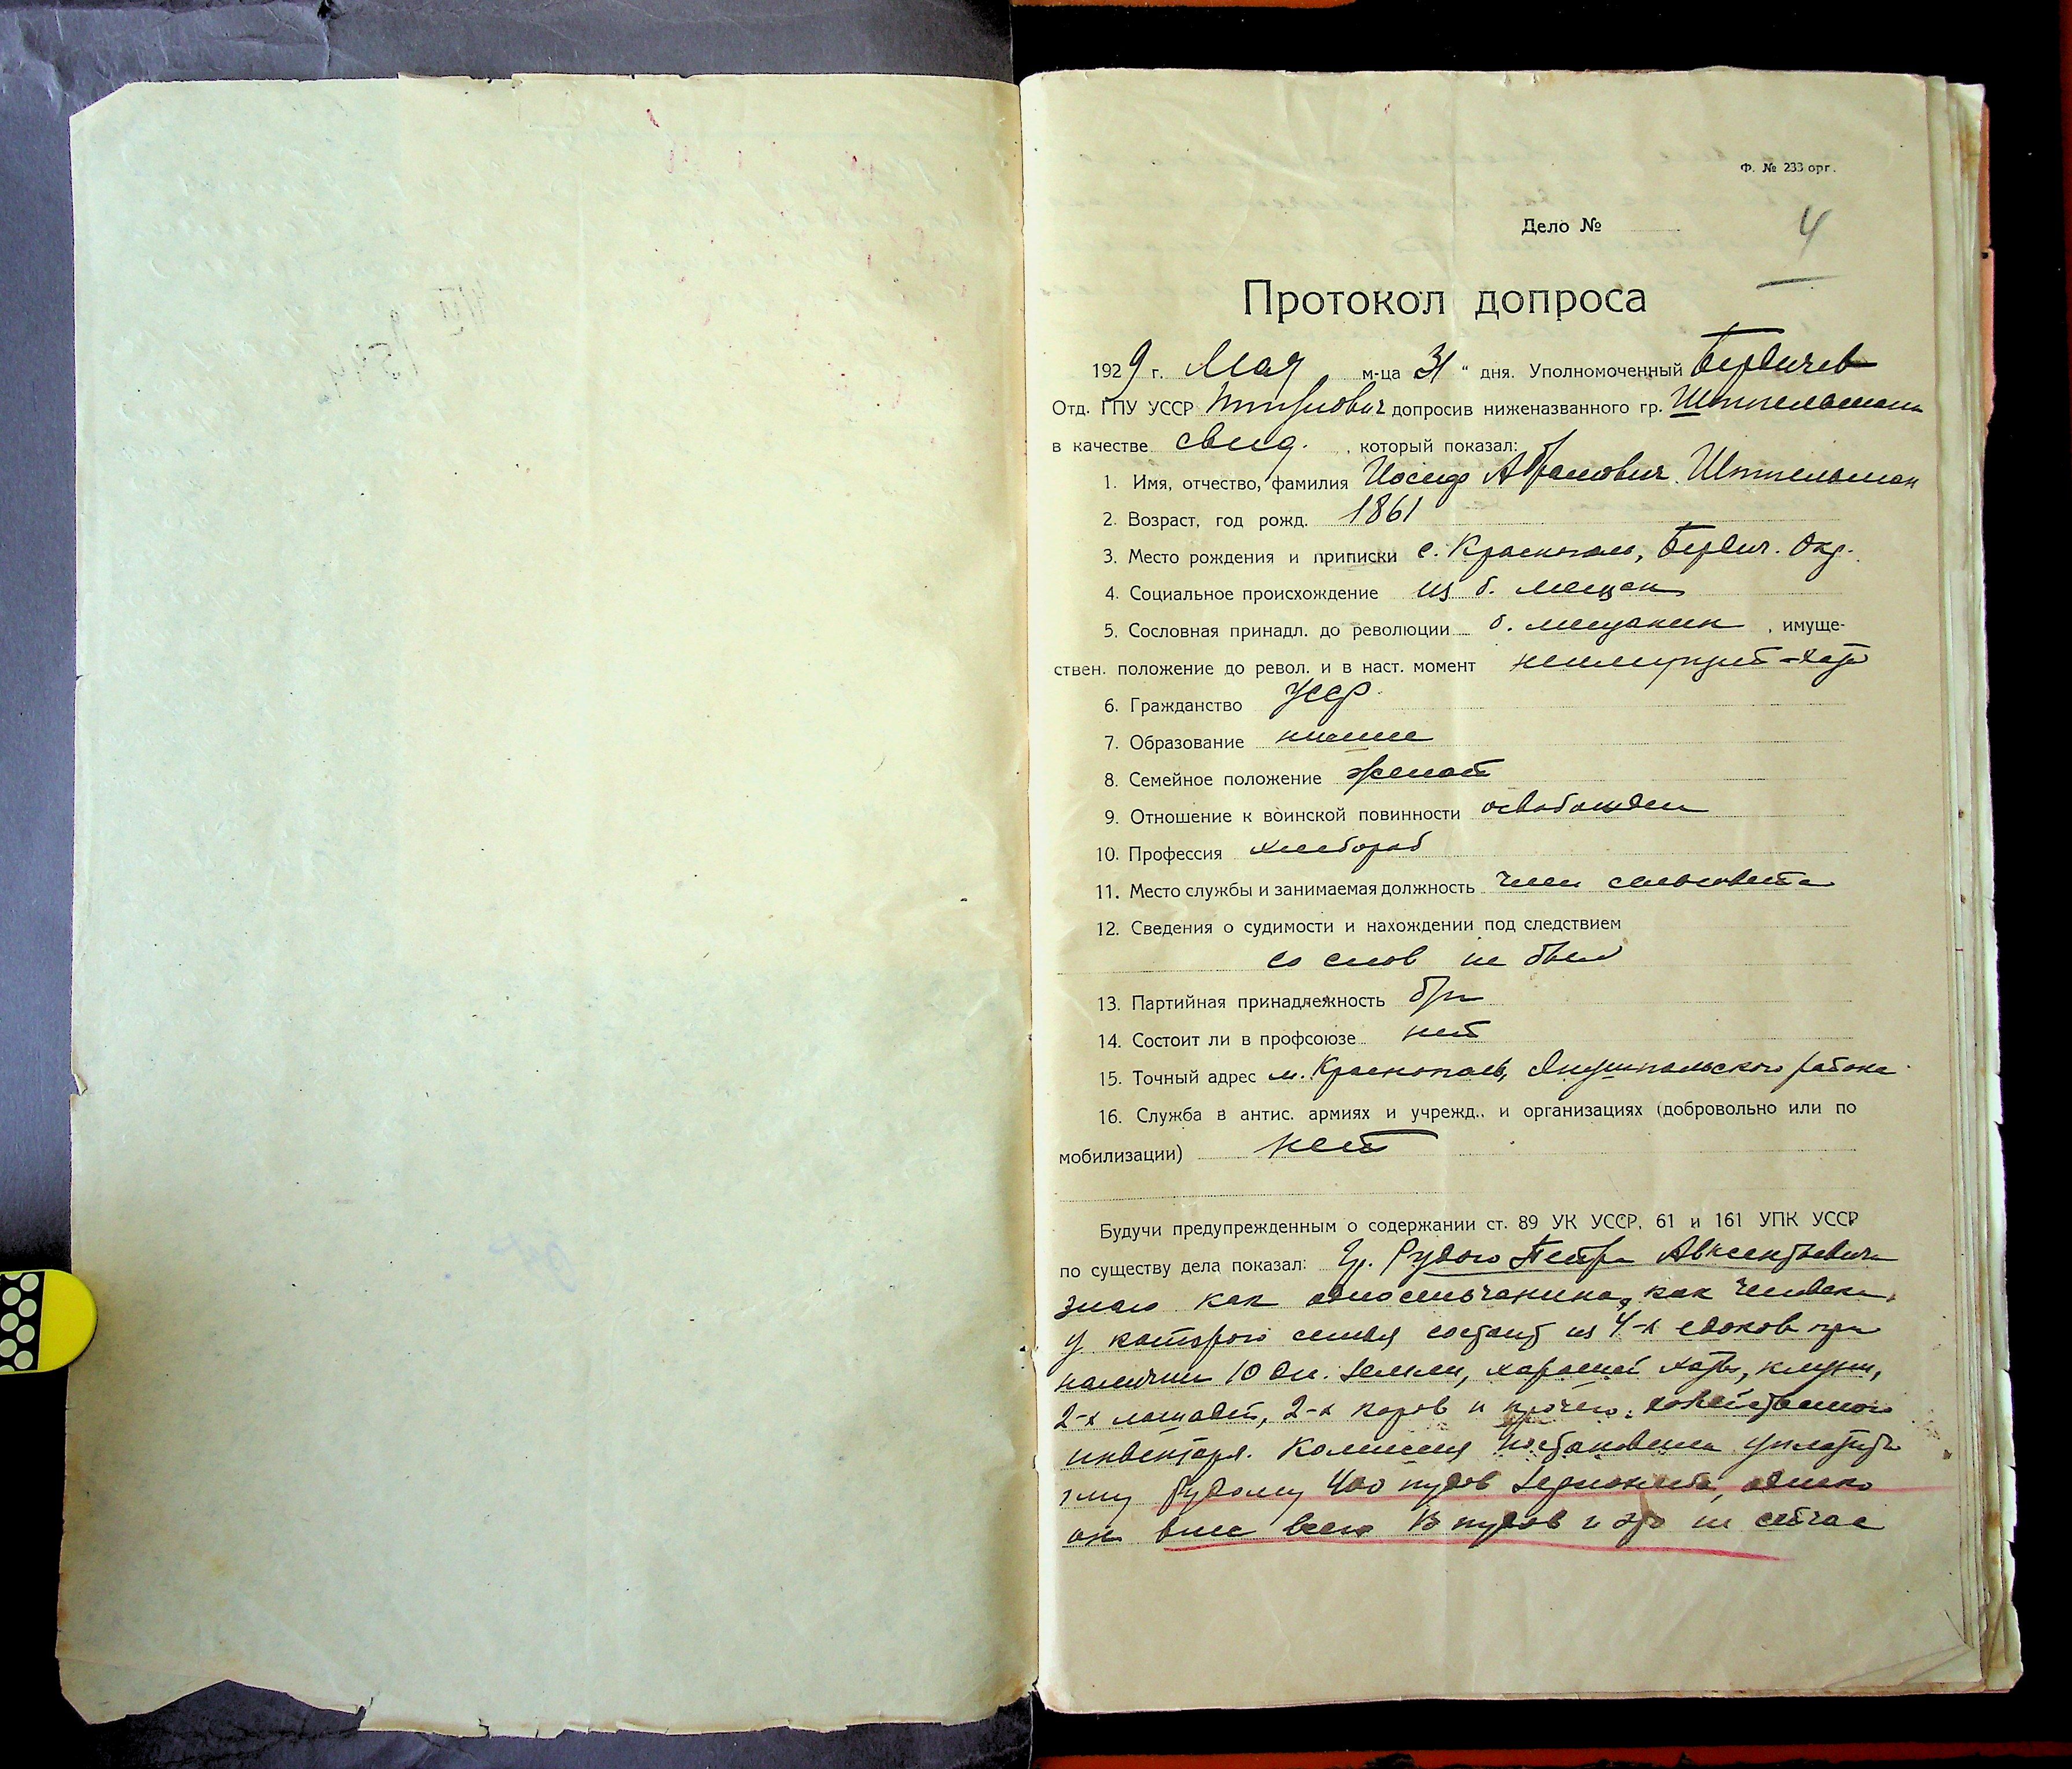 Ф. № 233 орг.
Дело №
4
Протокол допроса
1929 г. Мая м-ца 31 " дня. Уполномоченный Бердичев
Отд. ГПУ УССР допросив ниженазванного гр. Штительман
в качестве свид. , который показал:
1. Имя, отчество, фамилия Иосиф Абрамович Штительман
2. Возраст, год рожд. 1861
3. Место рождения и приписки с. Краснополь, Бердич. Окр.
4. Социальное происхождение из б. мещан
5. Сословная принадл. до революции б. мещанин , имуще-
ствен. положение до револ. и в наст. момент неимущий - хата
6. Гражданство УССР
7. Образование низшее
8. Семейное положение женат
9. Отношение к воинской повинности освобожден
10. Профессия хлебороб
11. Место службы и занимаемая должность член сельсовета
12. Сведения о судимости и нахождении под следствием
со слов не был
13. Партийная принадлежность б/п
14. Состоит ли в профсоюзе нет
15. Точный адрес м. Краснополь, Янушпольского района
16. Служба в антис. армиях и учрежд., и организациях (добровольно или по
мобилизации) нет
Будучи предупрежденным о содержании ст. 89 УК УССР, 61 и 161 УПК УССР
по существу дела показал: Гр. Рудого Петра Авксентьевича
знаю как односельчанина, как человека,
у которого семья состоит из 4-х едоков при
наличии 10 дн. земли, хорошей хаты, клуни,
2-х лошадей, 2-х коров и прочего хозяйственного
инвентаря. Комиссия постановила уплатить
ему Рудому 400 пудов, однако
он внес всего 13 пудов и это не сейчас